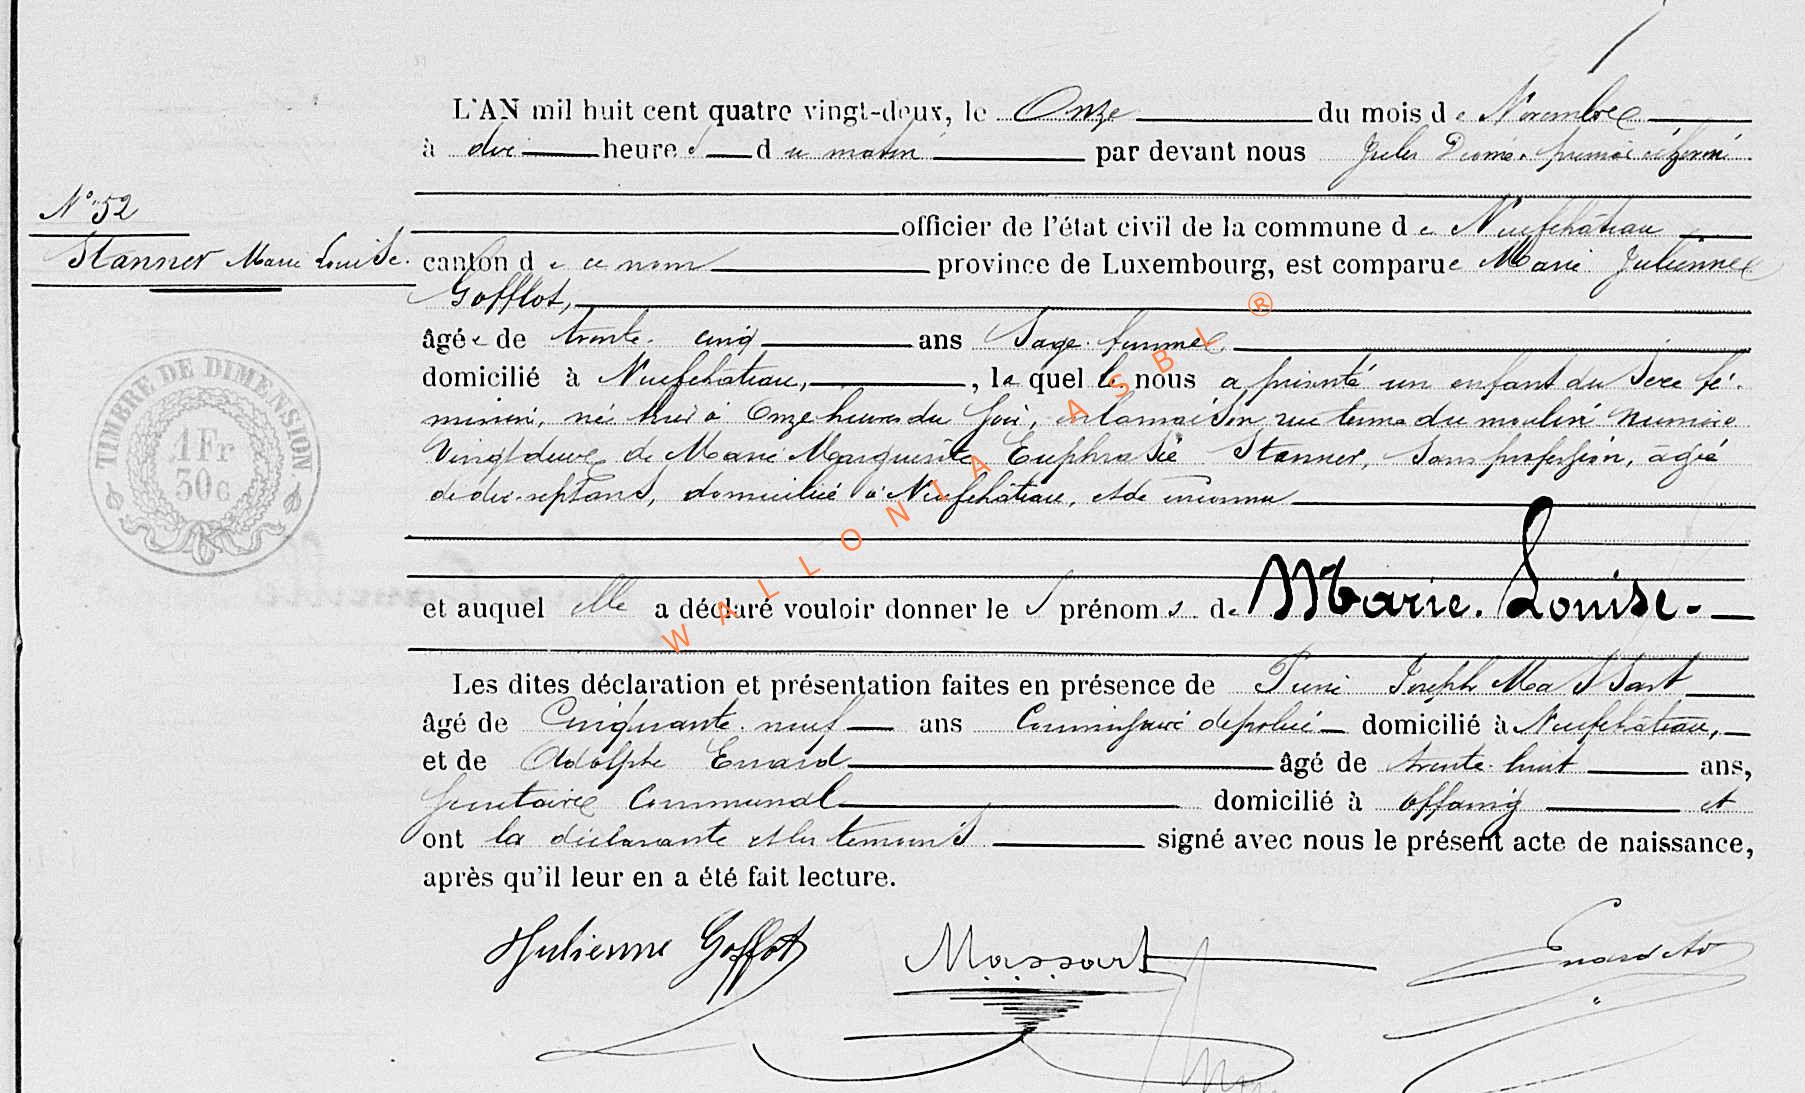 L'AN mil huit cent quatre vingt-deux, le Onze du mois de Novembre
à dix heures du matin par devant nous Jules
officier de l'état civil de la commune de Neufchâteau
N° 52
Stanner Marie Louise.
canton de ce nom province de Luxembourg, est comparue Marie Julienne
Gofflot,
âgée de trente-cinq ans Sage-femme
domicilié à Neufchâteau, laquelle nous a présenté un enfant du Sexe fé-
minin, né hier à Onze heures du Soir, en la maison rue du moulin numéro
Vingt deux, de Marie Marguerite Euphrasie Stanner, Sans profession, âgée
de dix-sept ans, domiciliée à Neufchâteau, et de inconnu
et auquel elle a déclaré vouloir donner les prénoms de Marie-Louise-
Les dites déclaration et présentation faites en présence de Pierre Joseph Massart
âgé de Cinquante-neuf ans Commissaire de police domicilié à Neufchâteau,
et de Adolphe Evrard âgé de trente-huit ans,
Secrétaire Communal domicilié à Offaing et
ont la déclarante et les témoins signé avec nous le présent acte de naissance,
après qu'il leur en a été fait lecture.
TIMBRE DE DIMENSION
1 Fr
30c
Julienne Gofflot Massart Evrard Ad
WALLONIA ASBL ®